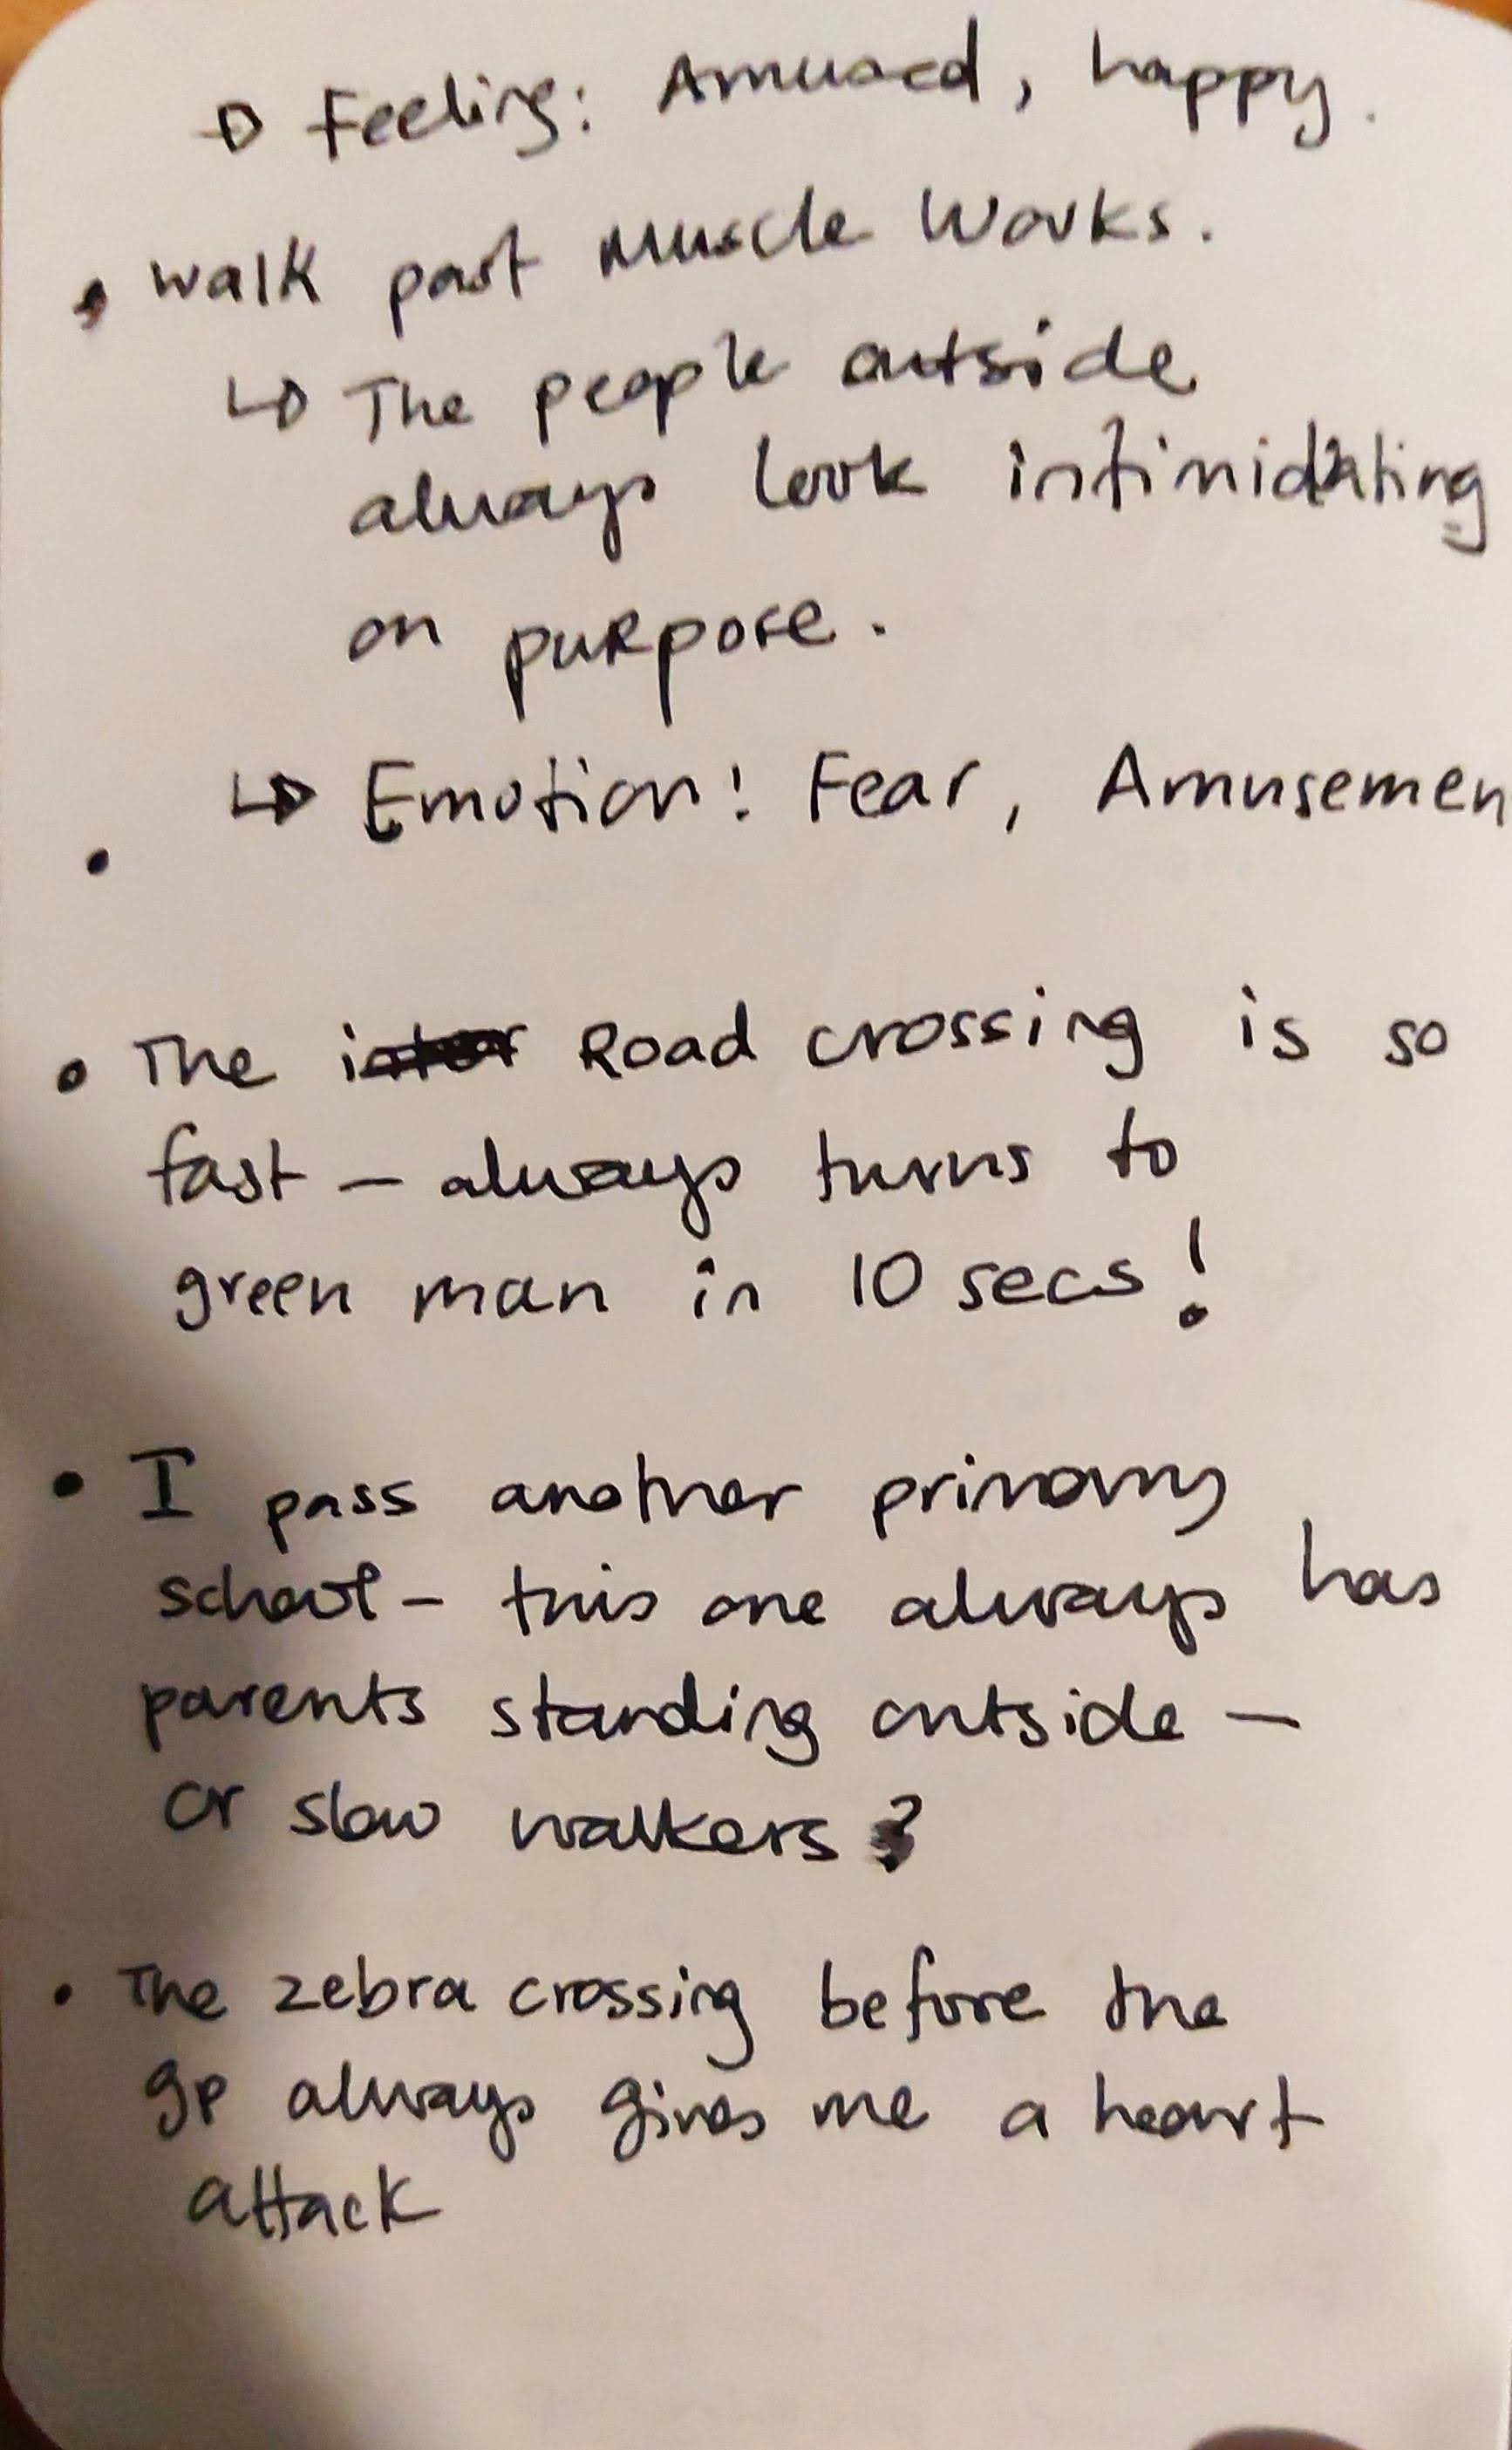 → Feeling: Amused, happy.
• Walk past Muscle Works.
↳ The people outside
always look intimidating
on purpose.
↳ Emotion: Fear, Amusemen
•
• The Road crossing is so
fast – always turns to
green man in 10 secs!
• I pass another primary
school – this one always has
parents standing outside –
or slow walkers?
• The zebra crossing before the
GP always gives me a heart
attack